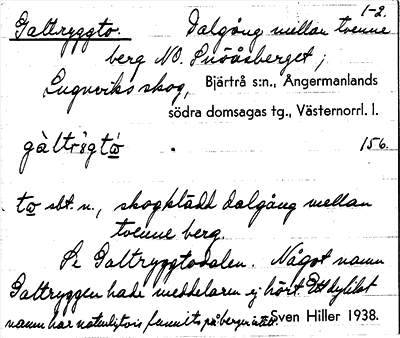 1-2.
Galtryggto. Dalgång mellan tvenne
berg NO. Snöåsberget;
Lugnviks skog, Bjärtrå s:n., Ångermanlands
södra domsagas tg., Västernorrl. l.
156.
to sbt. n., skogklädd dalgång mellan
tvenne berg.
Se Galtryggtodalen. Något namn
Galtryggen hade meddelaren ej hört. Ett dylikt
namn har naturligtvis funnits på berget
Sven Hiller 1938.